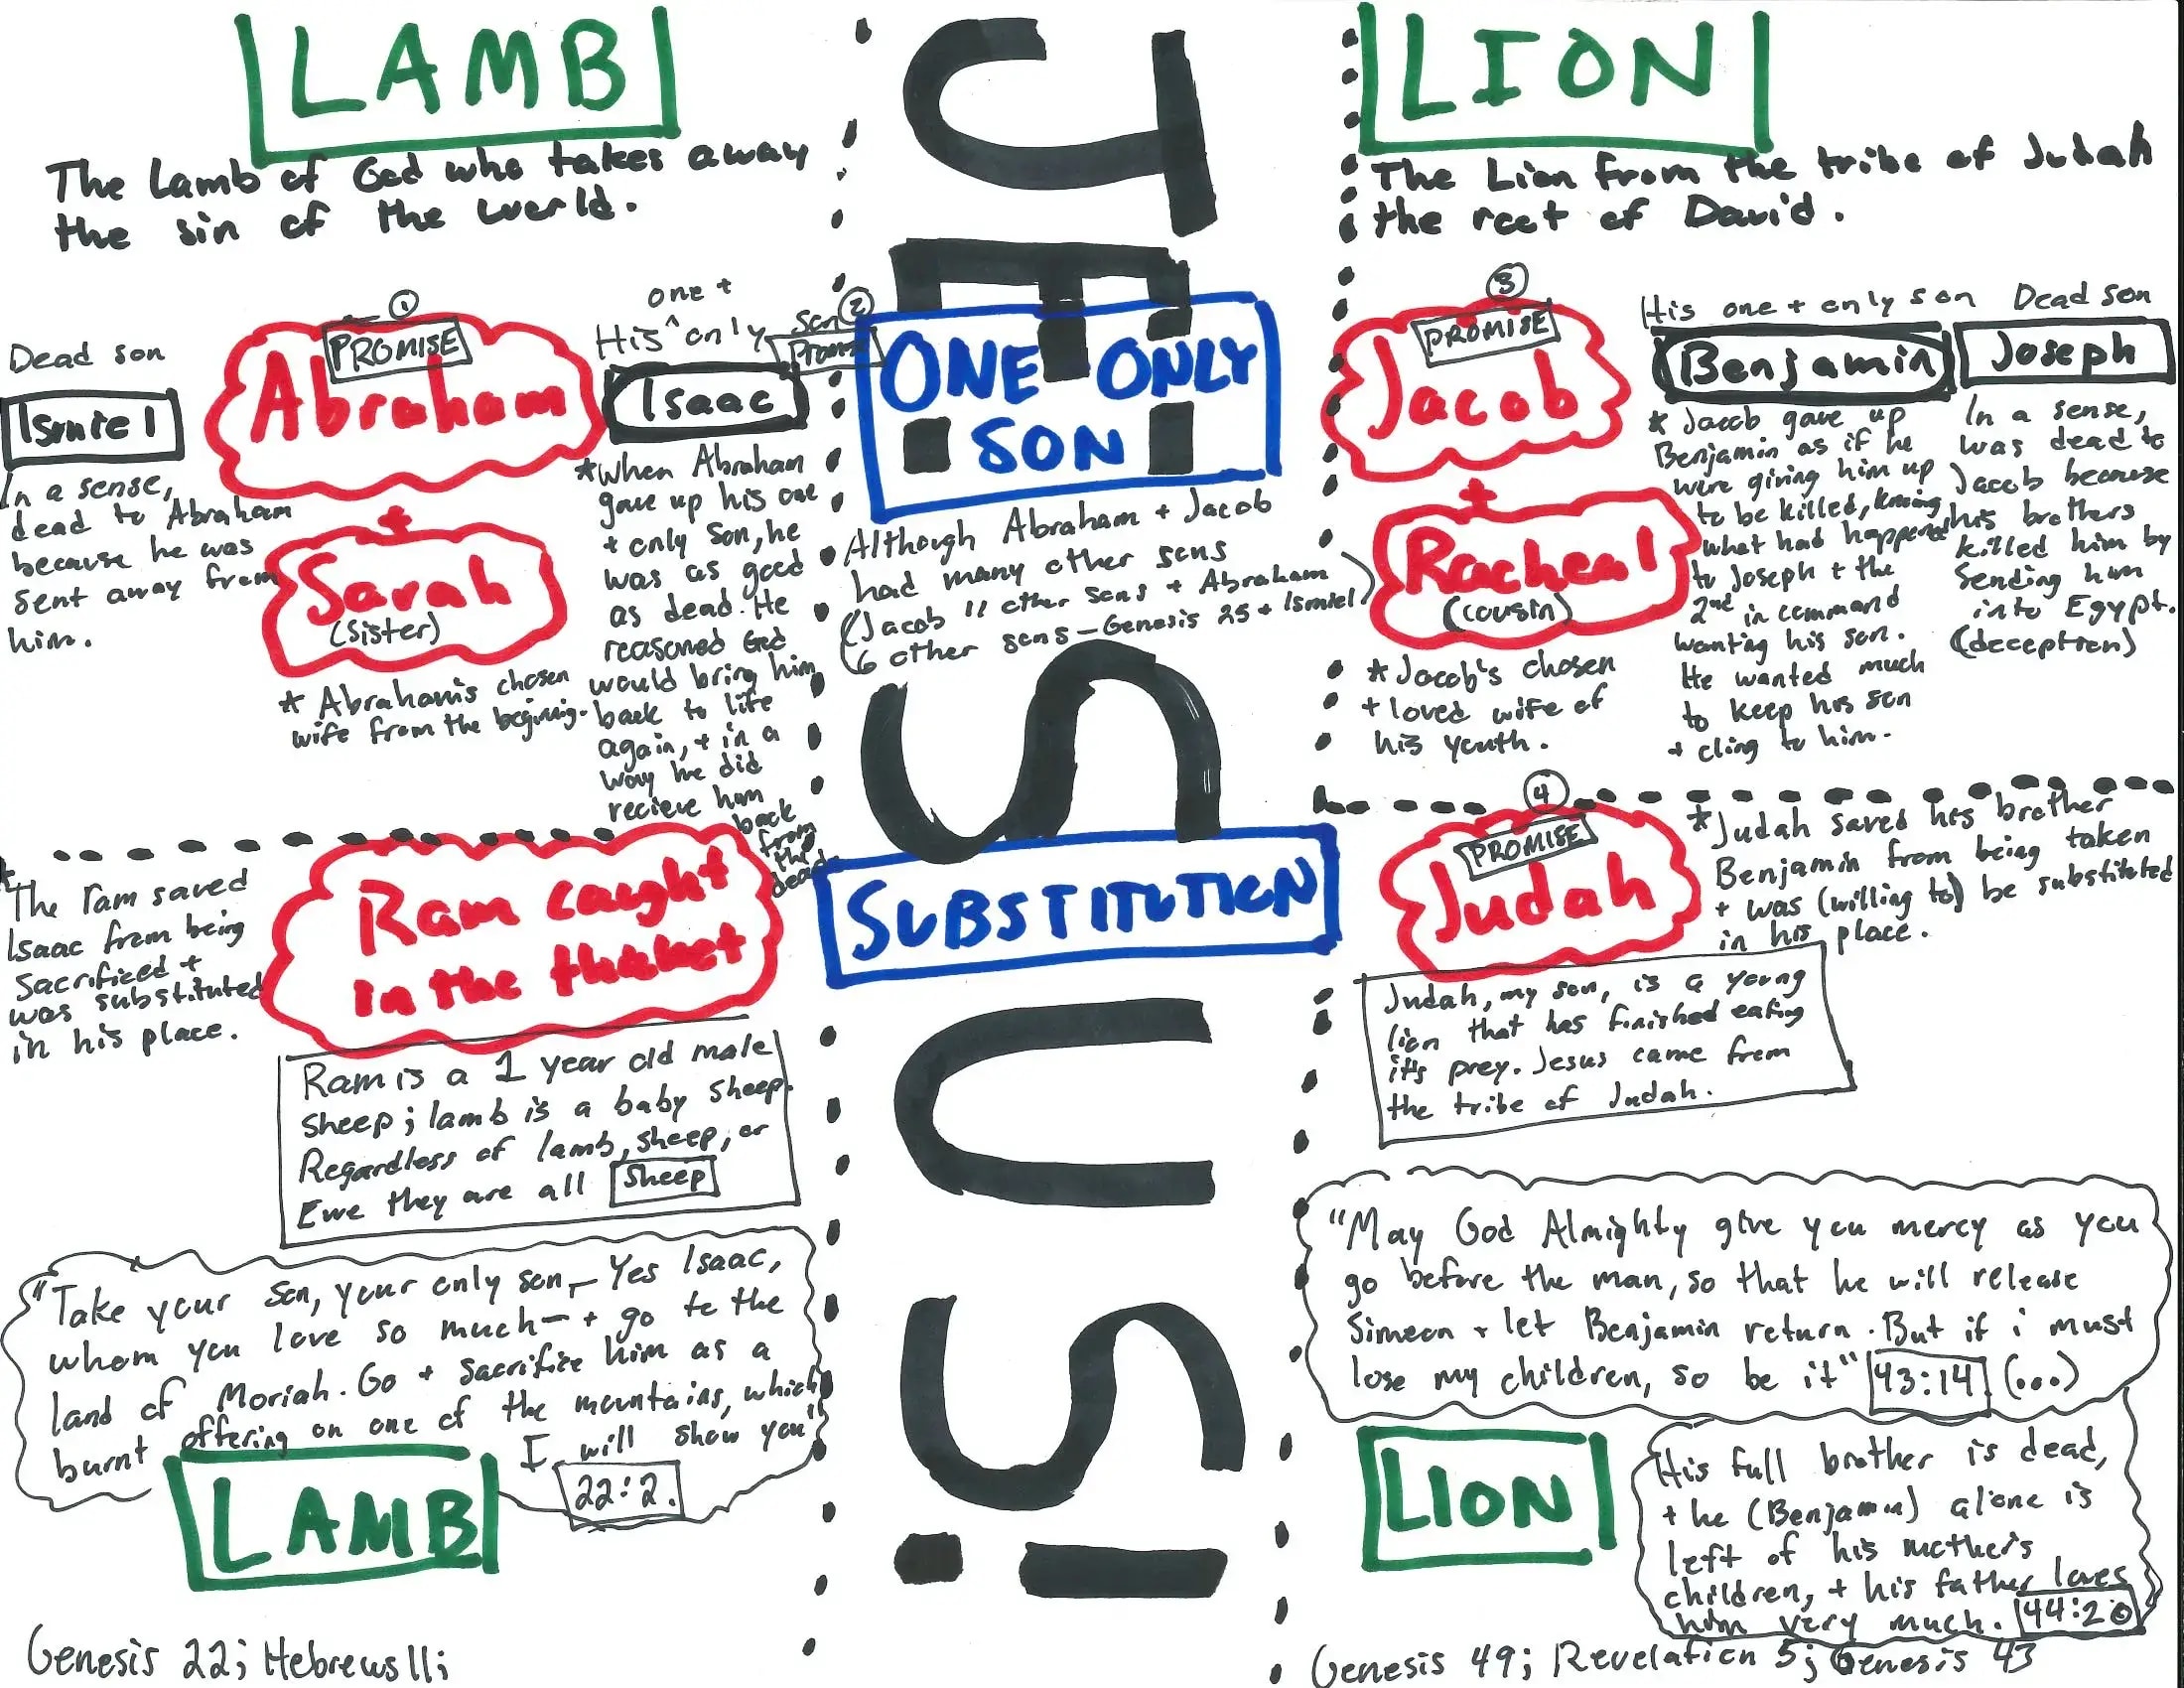 LAMB
The Lamb of God who takes away
the sin of the world.
Dead son
Ismiel
In a sense,
dead to Abraham
because he was
sent away from
him.
1
PROMISE
Abraham
+
Sarah
(sister)
* Abraham's chosen
wife from the begining.
one +
His ^ only son
2
Promise
Isaac
*when Abraham
gave up his one
+ only son, he
was as good
as dead. He
reasoned God
would bring him
back to life
again, + in a
way he did
recieve him
back
from
the
dead
*
The ram saved
Isaac from being
sacrificed +
was substituted
in his place.
Ram caught
in the thicket
Ram is a 1 year old male
sheep; lamb is a baby sheep.
Regardless of lamb, sheep, or
Ewe they are all sheep
"Take your son, your only son,— Yes Isaac,
whom you love so much— + go to the
land of Moriah. Go + sacrifice him as a
burnt offering on one of the mountains, which
I will show you"
22:2.
LAMB
Genesis 22; Hebrews 11;
JESUS!
ONE ONLY
SON
Although Abraham + Jacob
had many other sons
(Jacob 11 other sons + Abraham
6 other sons — Genesis 25 + Ismiel)
SUBSTITUTION
LION
The Lion from the tribe of Judah
the root of David.
3
PROMISE
Jacob
+
Racheal
(cousin)
* Jacob's chosen
+ loved wife of
his youth.
His one + only son
Benjamin
* Jacob gave up
Benjamin as if he
were giving him up
to be killed, knowing
what had happened
to Joseph + the
2nd in command
wanting his son.
He wanted much
to keep his son
+ cling to him.
Dead son
Joseph
In a sense,
was dead to
Jacob because
his brothers
killed him by
sending him
into Egypt.
(deception)
4
PROMISE
Judah
*Judah saved his brother
Benjamin from being taken
+ was (willing to) be substituted
in his place.
Judah, my son, is a young
lion that has finished eating
it's prey. Jesus came from
the tribe of Judah.
"May God Almighty give you mercy as you
go before the man, so that he will release
Simeon + let Benjamin return. But if i must
lose my children, so be it" 43:14 (...)
LION
His full brother is dead,
+ he (Benjamin) alone is
left of his mother's
children, + his father loves
him very much. 44:20
Genesis 49; Revelation 5; Genesis 43